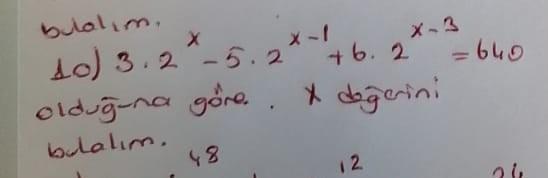 bulalım.
10) 3.2^x - 5.2^x-1 + 6.2^x-3 = 640
olduğuna göre. x değerini
bulalım.
48 12